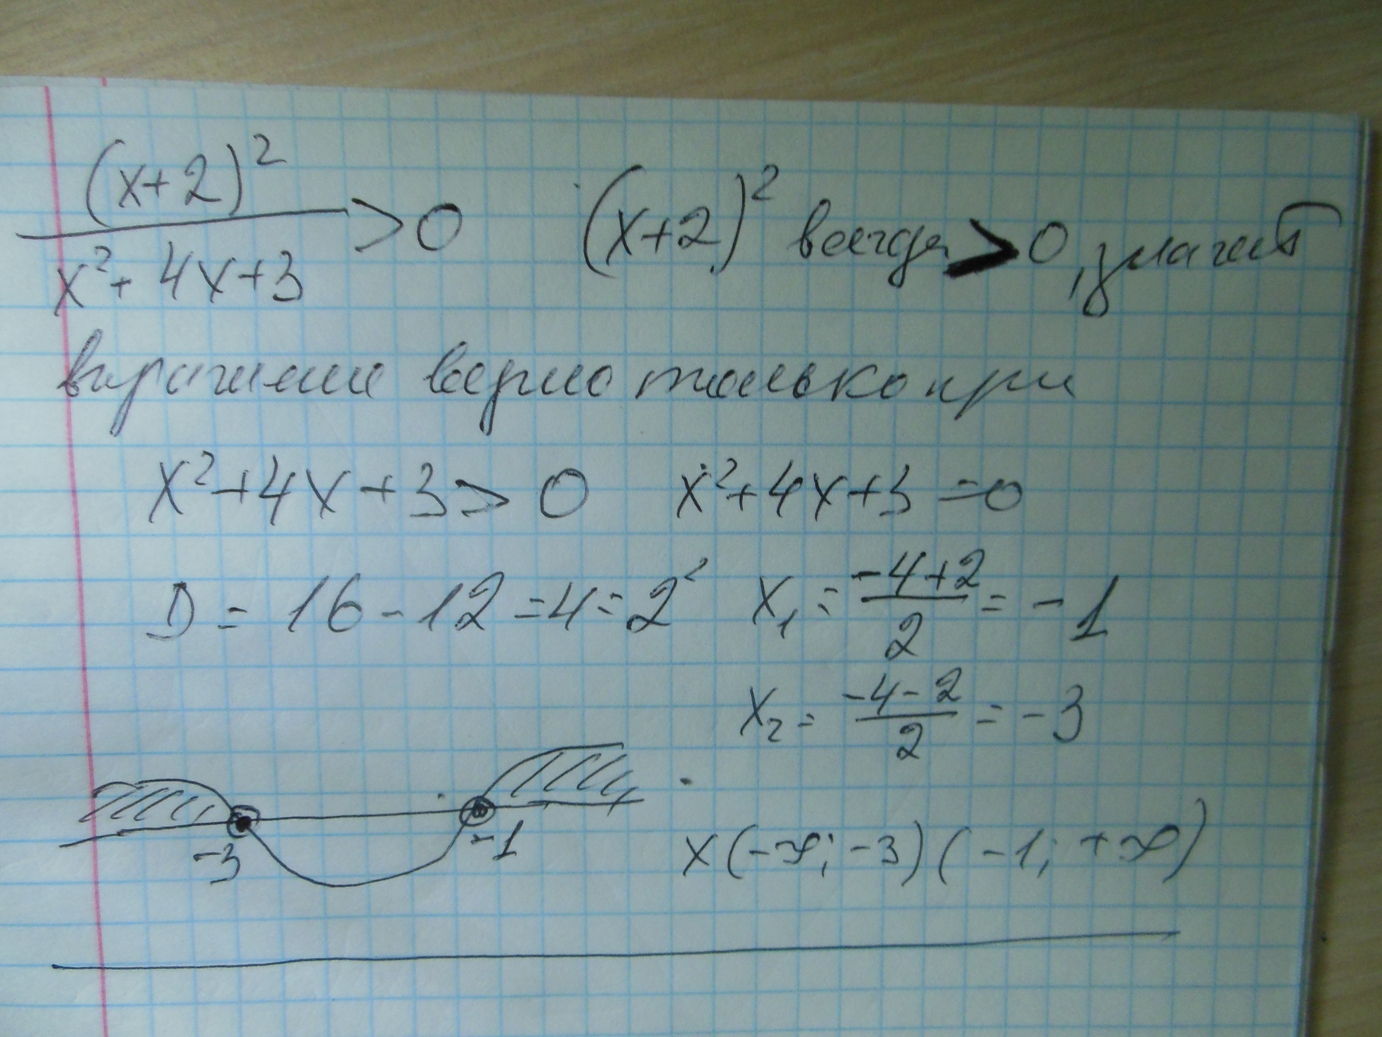 (x+2)² / (x²+4x+3) > 0   (x+2)² всегда > 0, значит
выражение верно только при
x²+4x+3 > 0   x²+4x+3 = 0
D = 16 - 12 = 4 = 2²   x₁ = (-4+2)/2 = -1
x₂ = (-4-2)/2 = -3
-3   -1
x (-∞; -3) (-1; +∞)